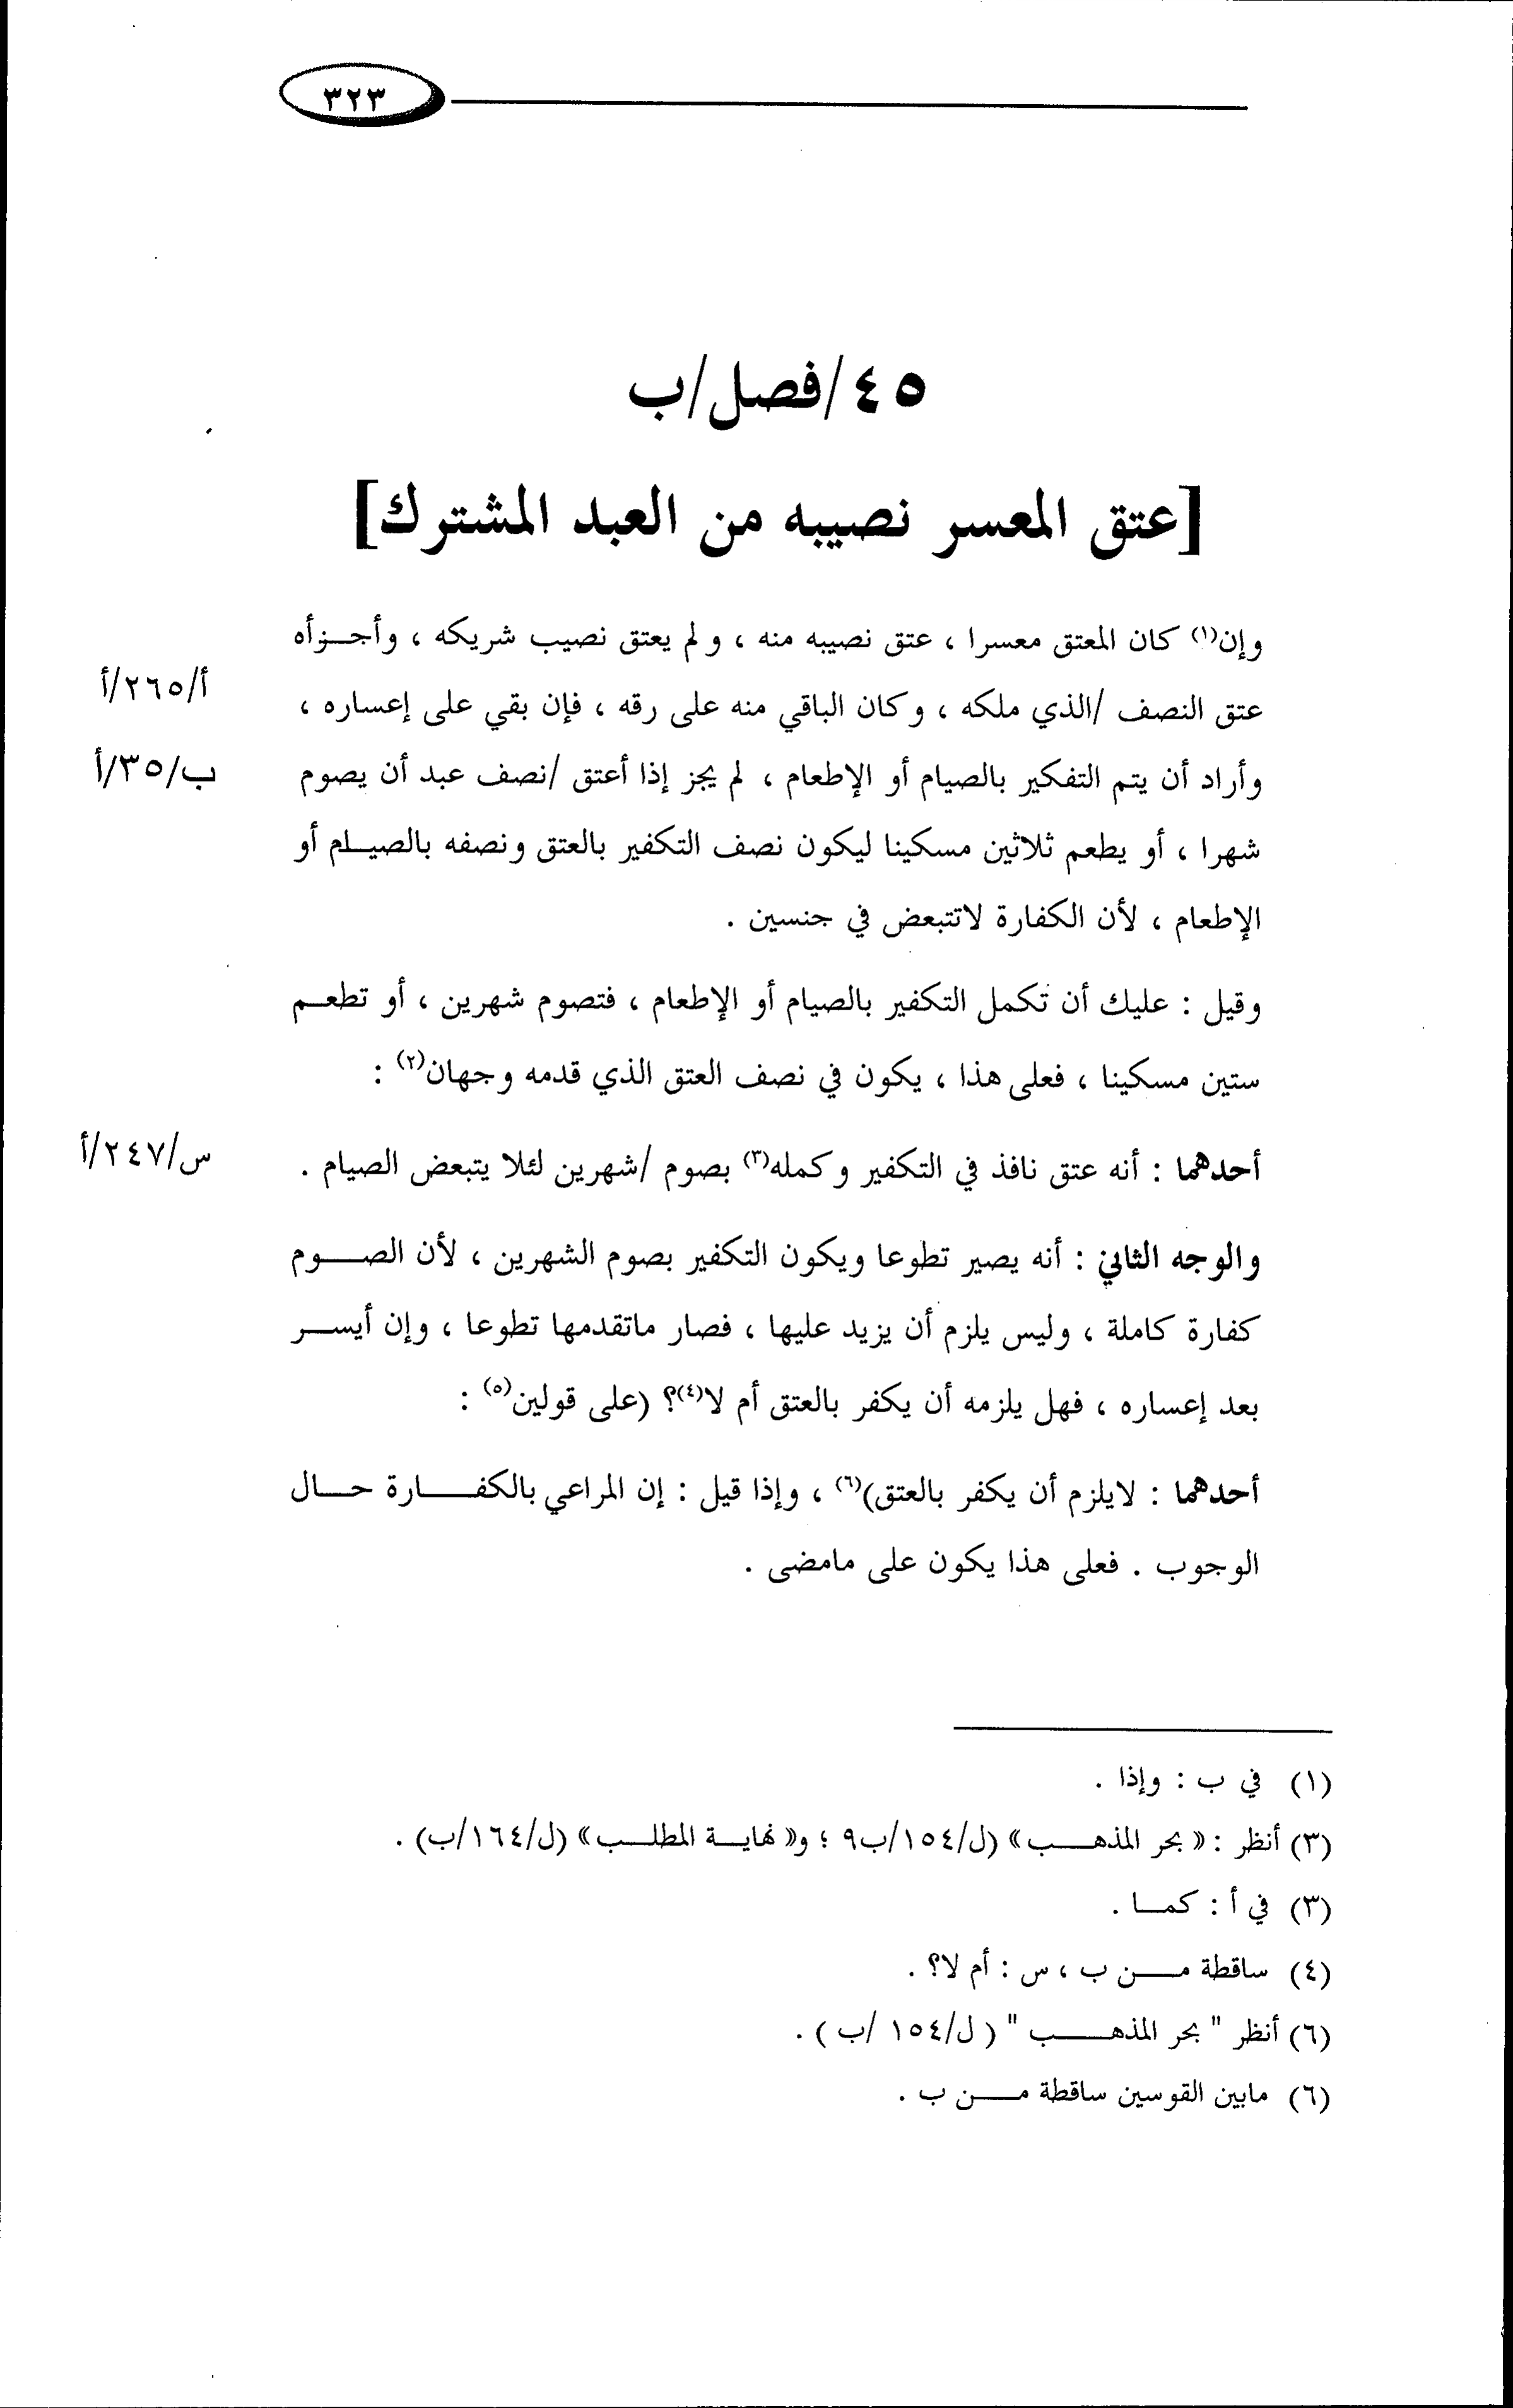 ٣٢٣
٤٥/فصل/ب
[عتق المعسر نصيبه من العبد المشترك]
وإن(١) كان المعتق معسرا ، عتق نصيبه منه ، ولم يعتق نصيب شريكه ، وأجـــزأه
أ/٢٦٥/أ
عتق النصف /الذي ملكه ، وكان الباقي منه على رقه ، فإن بقي على إعساره ،
ب/٣٥/أ
وأراد أن يتم التفكير بالصيام أو الإطعام ، لم يجز إذا أعتق /نصف عبد أن يصوم
شهرا ، أو يطعم ثلاثين مسكينا ليكون نصف التكفير بالعتق ونصفه بالصيــام أو
الإطعام ، لأن الكفارة لاتتبعض في جنسين .
وقيل : عليك أن تكمل التكفير بالصيام أو الإطعام ، فتصوم شهرين ، أو تطعـــم
ستين مسكينا ، فعلى هذا ، يكون في نصف العتق الذي قدمه وجهان(٢) :
س/٢٤٧/أ
أحدهما : أنه عتق نافذ في التكفير وكمله(٣) بصوم /شهرين لئلا يتبعض الصيام .
والوجه الثاني : أنه يصير تطوعا ويكون التكفير بصوم الشهرين ، لأن الصــــوم
كفارة كاملة ، وليس يلزم أن يزيد عليها ، فصار ماتقدمها تطوعا ، وإن أيســـر
بعد إعساره ، فهل يلزمه أن يكفر بالعتق أم لا(٤)؟ (على قولين(٥) :
أحدهما : لايلزم أن يكفر بالعتق)(٦) ، وإذا قيل : إن المراعي بالكفـــــارة حـــال
الوجوب . فعلى هذا يكون على مامضى .
(١) في ب : وإذا .
(٣) أنظر : « بحر المذهـــب» (ل/١٥٤/ب٩ ؛ و« نهايـــة المطلـــب» (ل/١٦٤/ب) .
(٣) في أ : كمـــا .
(٤) ساقطة مـــن ب ، س : أم لا؟ .
(٦) أنظر " بحر المذهـــــب " ( ل/١٥٤ /ب ) .
(٦) مابين القوسين ساقطة مـــن ب .